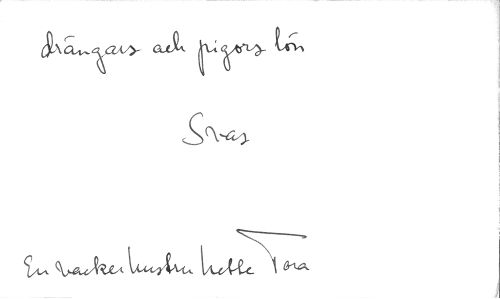 drängars och pigors lön
Svar
En vacker hustru hette Tora